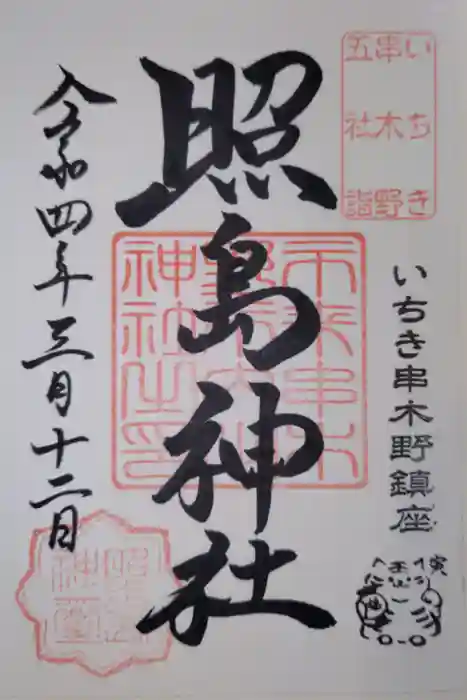 いちき
串木野
五社詣
いちき串木野鎮座
照島神社
令和四年三月十二日
寅